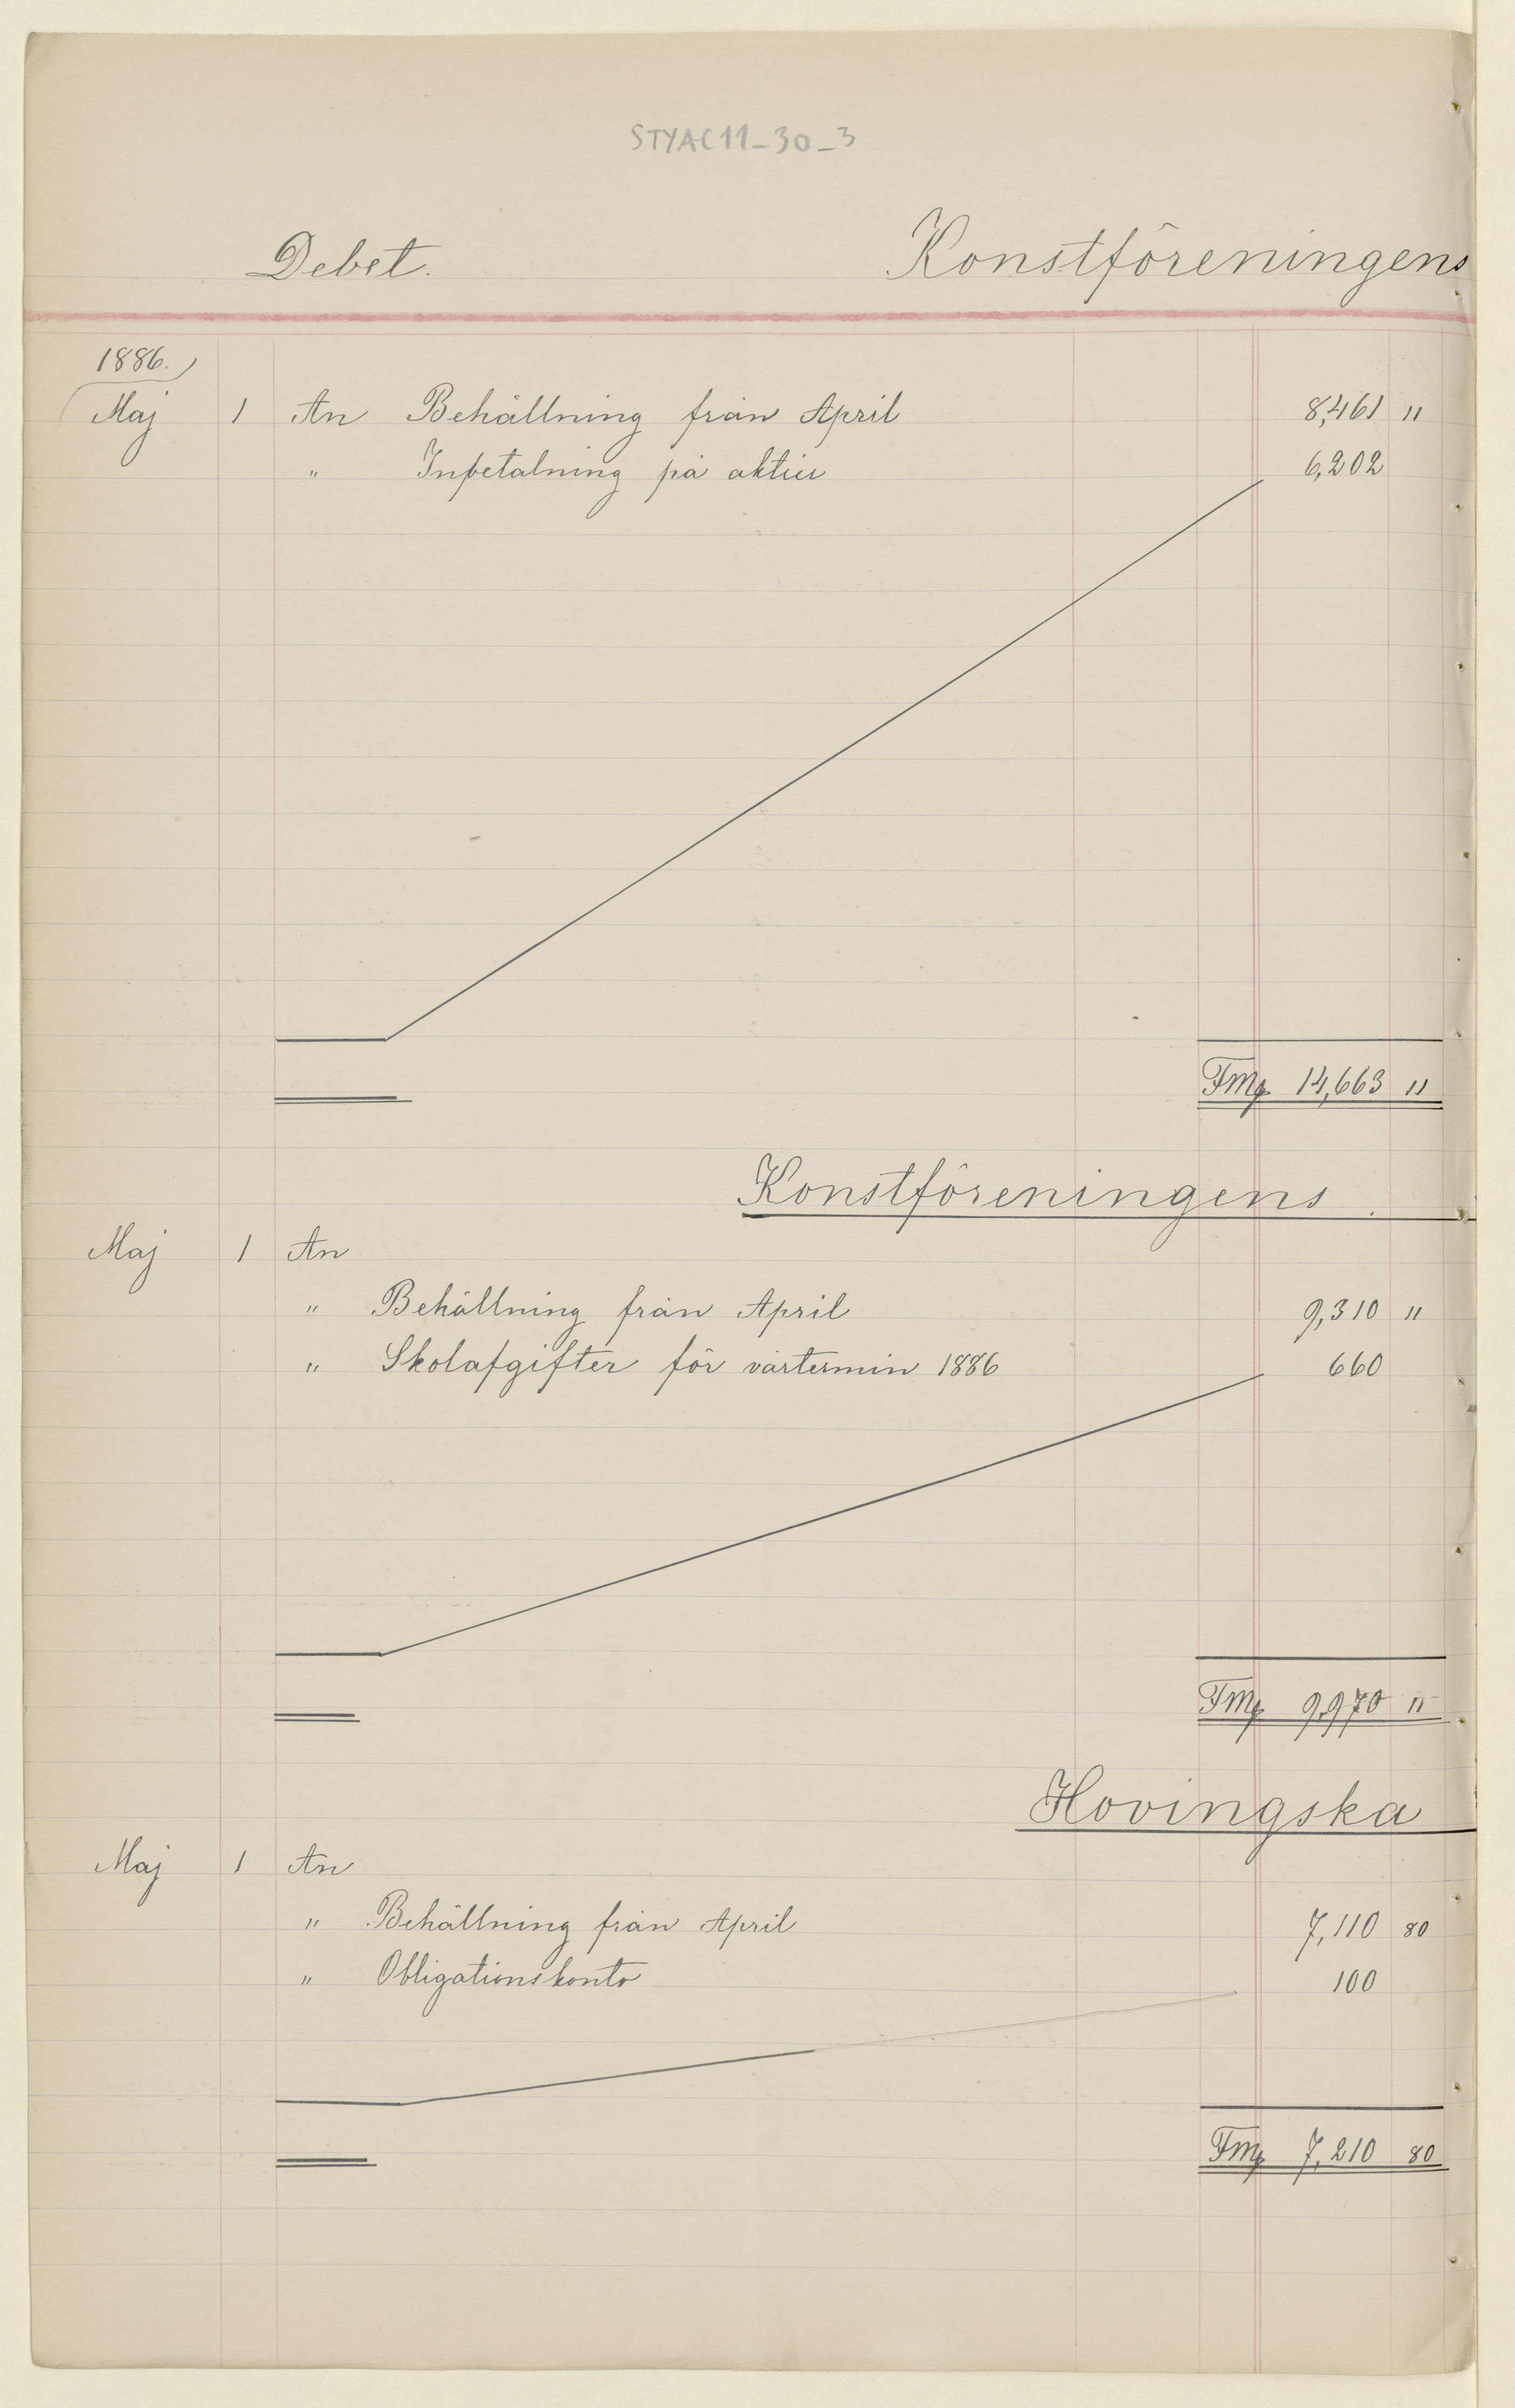 STYAC11_30_3
Debet. Konstföreningens
1886.
Maj 1 An Behållning från April 8,461 "
" Inbetalning på aktier 6,202
Fmk 14,663 "
Konstföreningens
Maj 1 An
" Behållning från April 9,310 "
" Skolafgifter för vårtermin 1886 660
Fmk 9,970 "
Hovingska
Maj 1 An
" Behållning från April 7,110 80
" Obligationskonto 100
Fmk 7,210 80